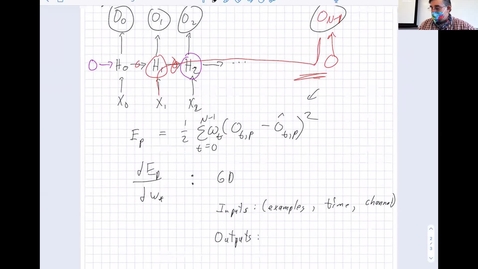 O_0 O_1 O_2 O_N-1
O → H_0 → H_1 → H_2 → ... O
X_0 X_1 X_2
E_p = 1/2 Σ_{t=0}^{N-1} ω_t (O_{t,p} - Ô_{t,p})^2
dE_p / dw_* : GD
Inputs: (examples, time, channel)
Outputs: